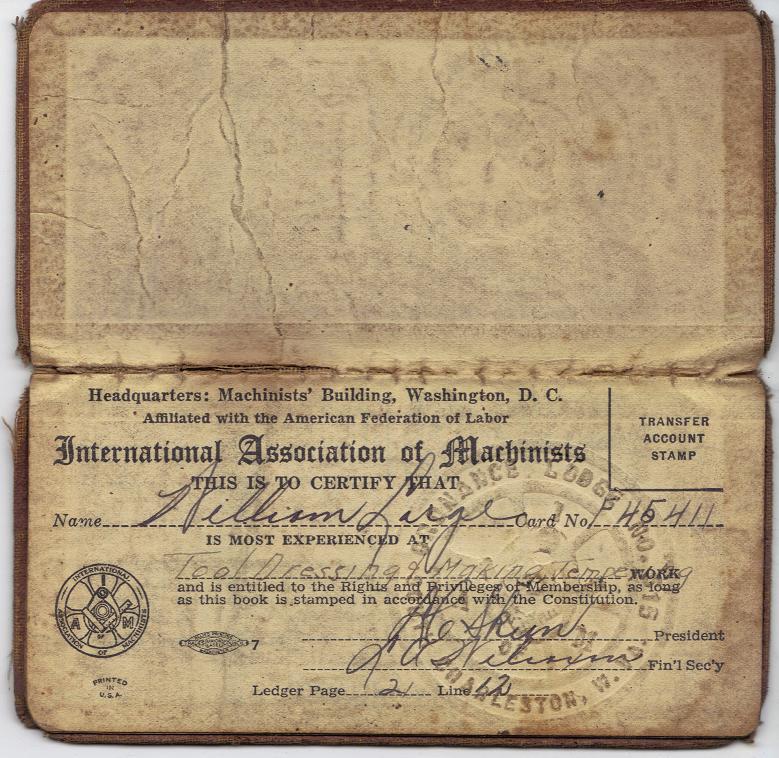 Headquarters: Machinists' Building, Washington, D. C.
Affiliated with the American Federation of Labor
International Association of Machinists
TRANSFER
ACCOUNT
STAMP
THIS IS TO CERTIFY THAT
Name William Large Card No. P 45411
IS MOST EXPERIENCED AT
Tool Dressing & Making Tempering WORK
and is entitled to the Rights and Privileges of Membership, as long
as this book is stamped in accordance with the Constitution.
President
Fin'l Sec'y
Ledger Page 21 Line 12
7
INTERNATIONAL ASSOCIATION OF MACHINISTS
I A M
PRINTED
IN
U.S.A.
ORDNANCE LODGE NO.
CHARLESTON, W. VA.